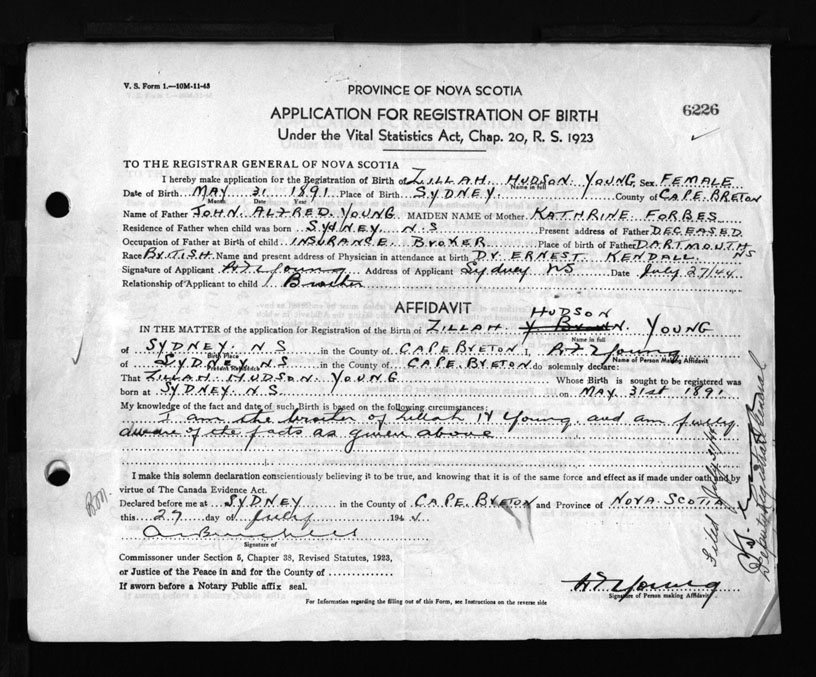 V. S. Form 1.—10M-11-43
PROVINCE OF NOVA SCOTIA
6226
APPLICATION FOR REGISTRATION OF BIRTH
Under the Vital Statistics Act, Chap. 20, R. S. 1923
TO THE REGISTRAR GENERAL OF NOVA SCOTIA
I hereby make application for the Registration of Birth of ZILLAH HUDSON YOUNG, Sex FEMALE
Name in full
Date of Birth MAY 31 1891 Place of Birth SYDNEY County of CAPE BRETON
Month Date Year
Name of Father JOHN ALFRED YOUNG MAIDEN NAME of Mother KATHRINE FORBES
Residence of Father when child was born SYDNEY N S Present address of Father DECEASED
Occupation of Father at Birth of child INSURANCE BROKER Place of birth of Father DARTMOUTH NS
Race BRITISH Name and present address of Physician in attendance at birth DR ERNEST KENDALL
Signature of Applicant Young Address of Applicant Sydney NS Date July 27/44
Relationship of Applicant to child Brother
AFFIDAVIT
HUDSON
IN THE MATTER of the application for Registration of the Birth of ZILLAH YOUNG
Name in full
of SYDNEY N S in the County of CAPE BRETON I, Young
Birth Place Name of Person Making Affidavit
of SYDNEY N S in the County of CAPE BRETON do solemnly declare:
Present Residence
That ZILLAH HUDSON YOUNG Whose Birth is sought to be registered was
born at SYDNEY N S on MAY 31st 1891
My knowledge of the fact and date of such Birth is based on the following circumstances:
I am the brother of Zillah H Young and am fully
aware of the facts as given above
I make this solemn declaration conscientiously believing it to be true, and knowing that it is of the same force and effect as if made under oath and by
virtue of The Canada Evidence Act.
Declared before me at SYDNEY in the County of CAPE BRETON and Province of NOVA SCOTIA
this 27 day of July 194
Signature of
Commissioner under Section 5, Chapter 38, Revised Statutes, 1923,
or Justice of the Peace in and for the County of
If sworn before a Notary Public affix seal.
Young
Signature of Person making Affidavit
For Information regarding the filling out of this Form, see Instructions on the reverse side
Filed July
Deputy Registrar General